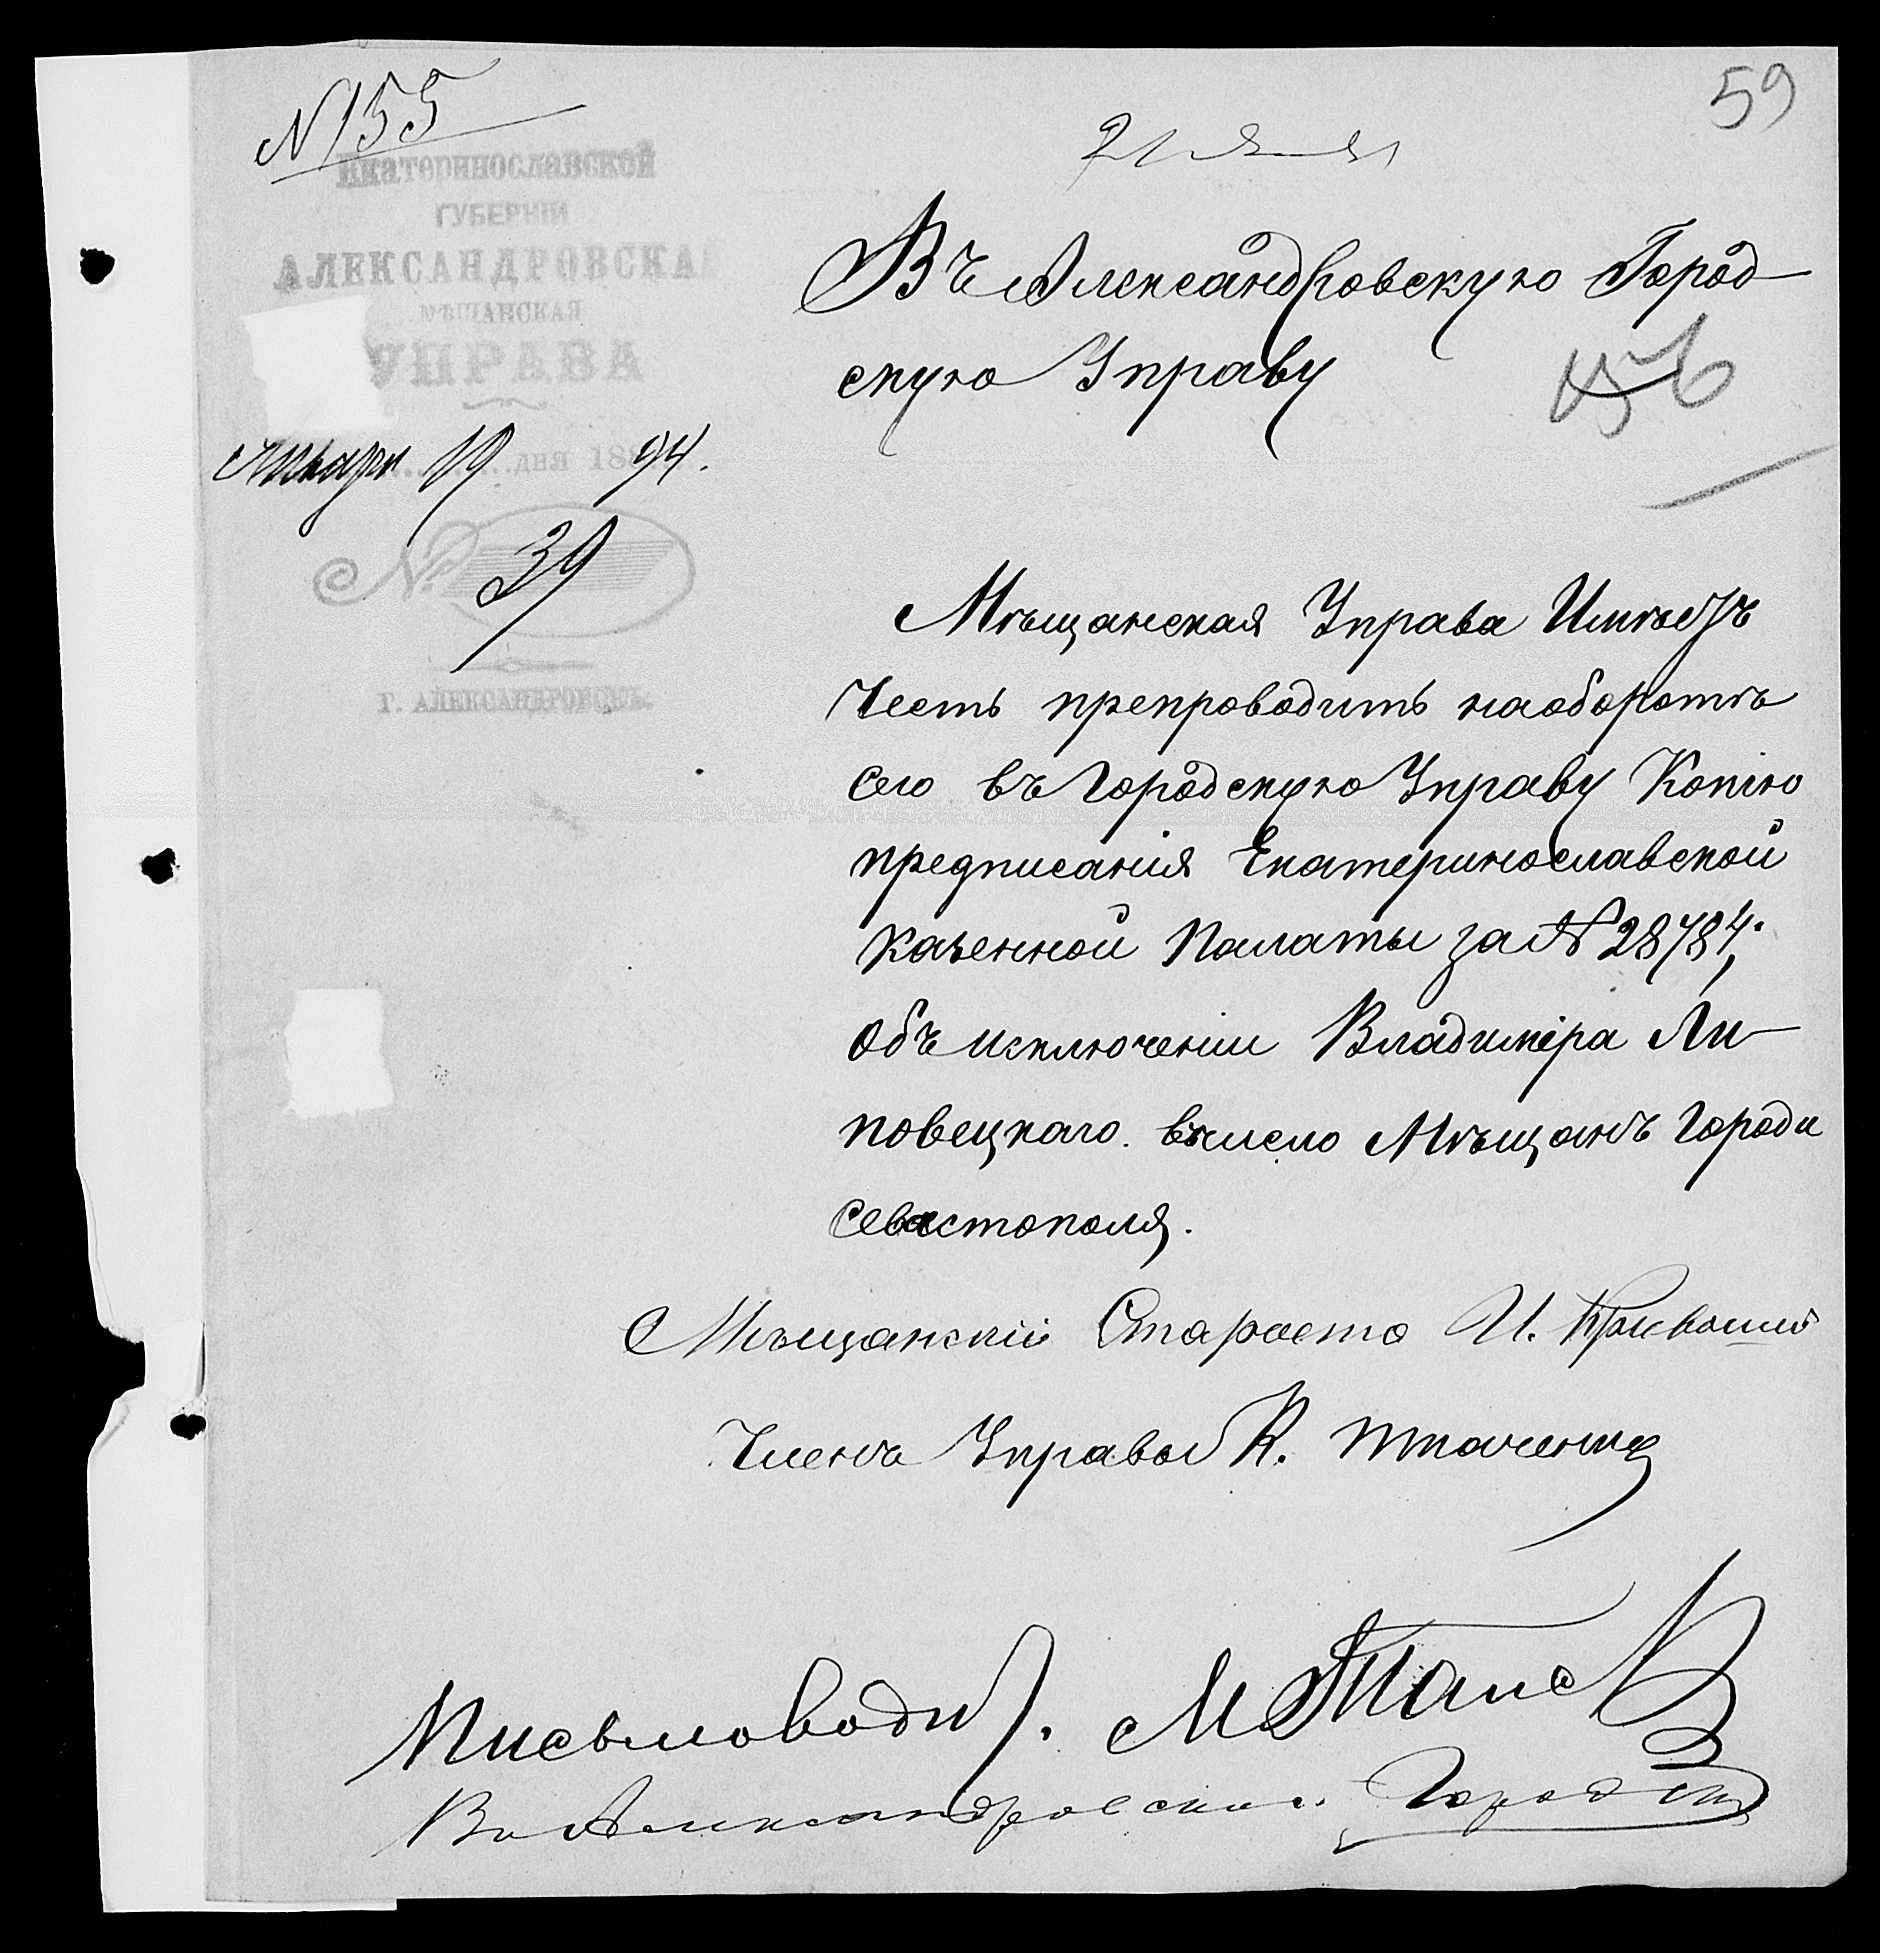 № 155
59
21 янв
Екатеринославской
ГУБЕРНІИ
АЛЕКСАНДРОВСКАЯ
МѢЩАНСКАЯ
УПРАВА
Января 19 дня 1894.
№ 39
Г. АЛЕКСАНДРОВСКЪ.
Въ Александровскую Город-
скую Управу
Мѣщанская Управа Имѣетъ
Честь препроводить на оборотѣ
сего въ Городскую Управу Копію
предписанія Екатеринославской
Казенной Палаты за № 28784,
объ исключеніи Владиміра Ли-
повецкаго вчисло Мѣщанъ города
Севастополя.
Мѣщанскій Староста И.
Членъ Управы К. Ткаченко
Письмоводит. М.
Въ Александровскую Городск